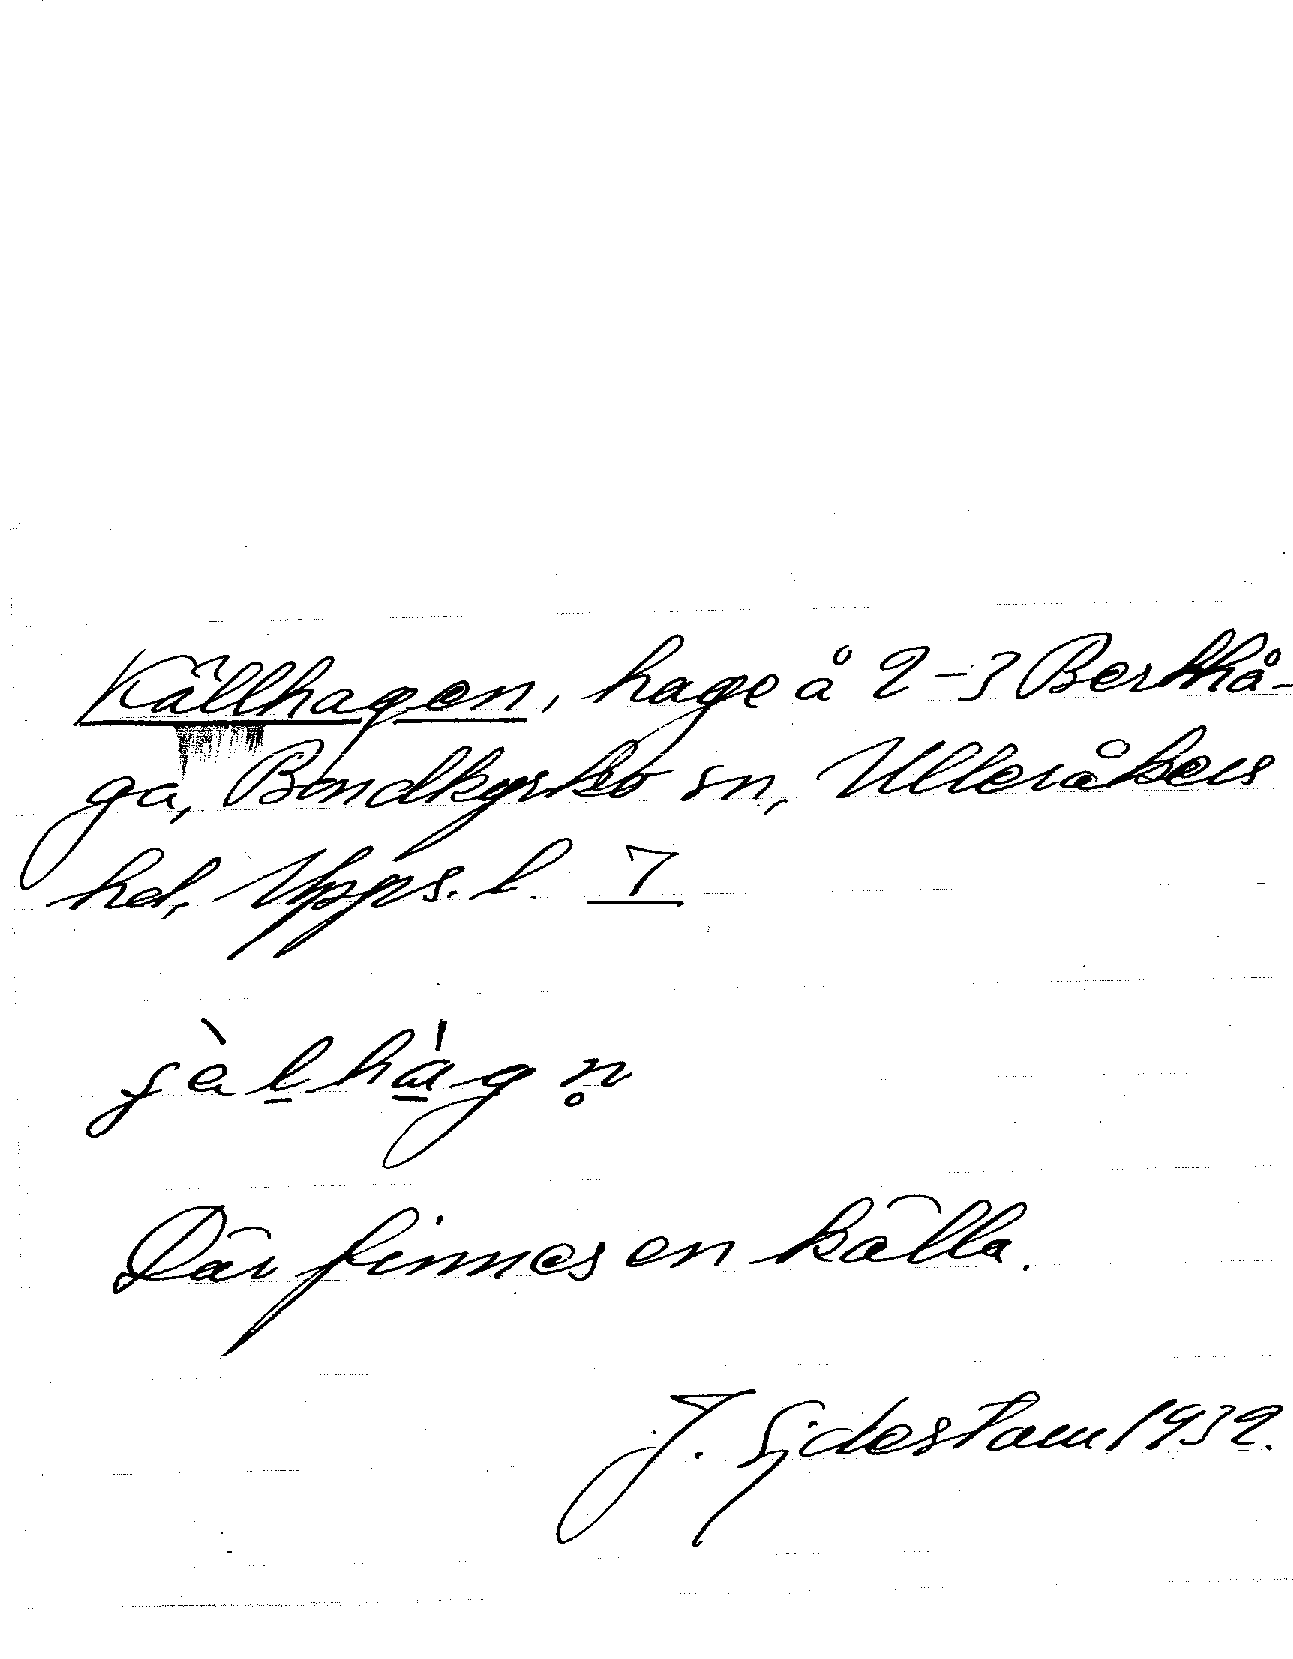 Källhagen, hage å 2-3 Berthå-
ga, Bondkyrko sn, Ulleråkers
hd, Upps. l. 7
Där finnes en källa.
J. Sjdestam 1932.